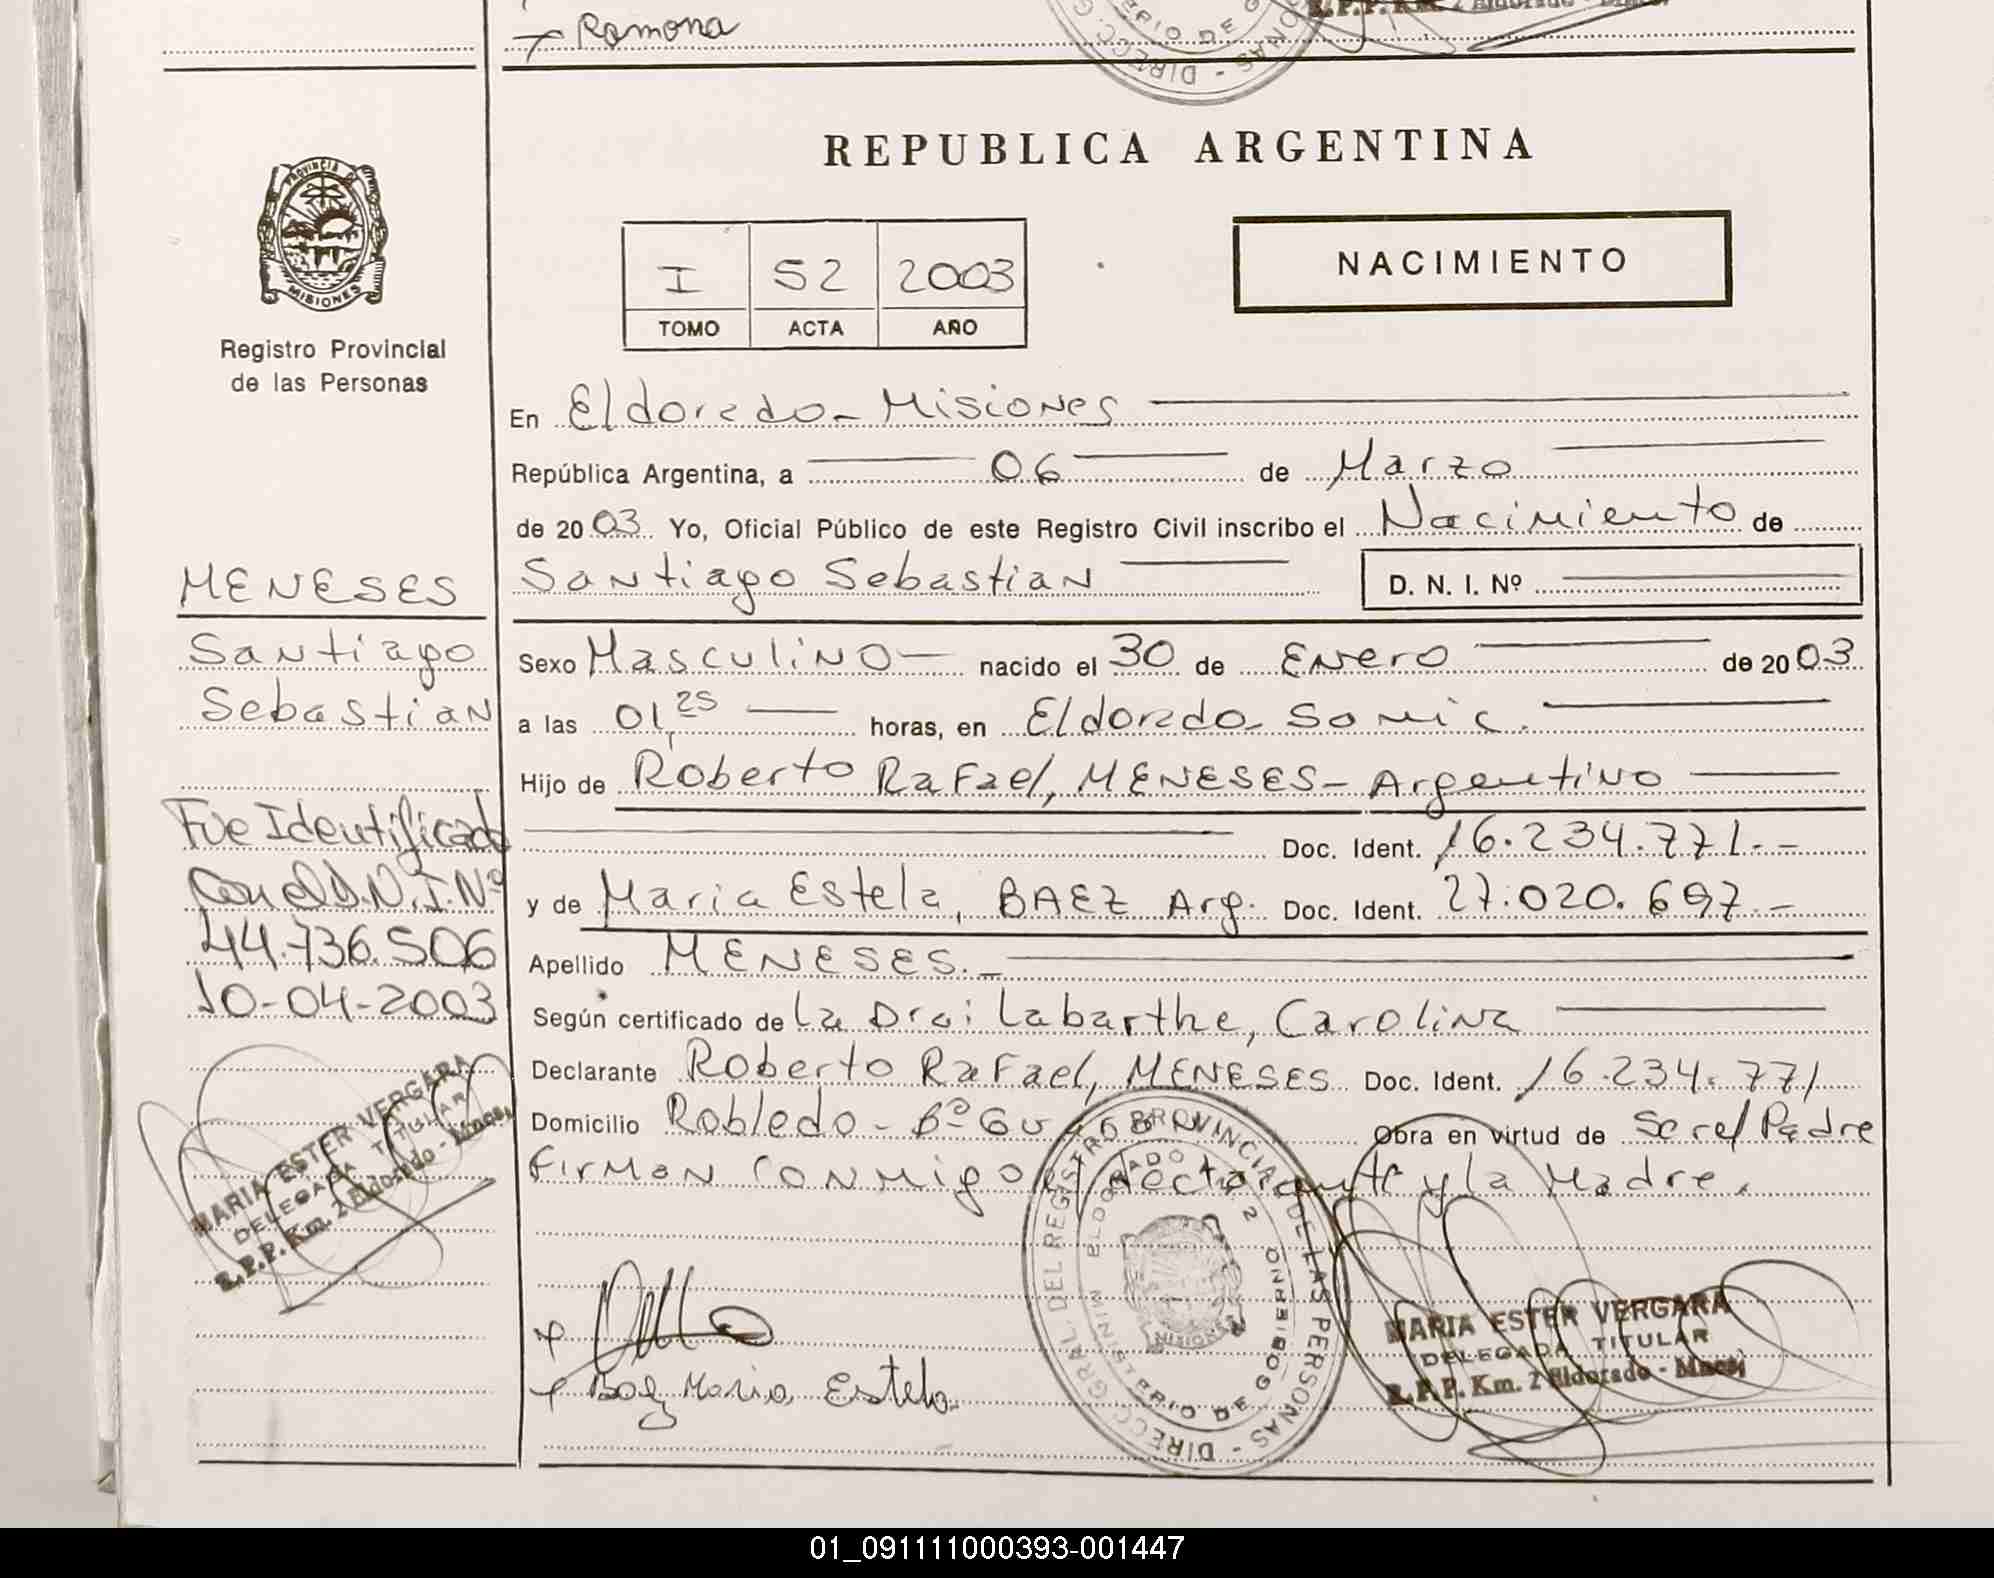 Ramona
REPUBLICA ARGENTINA
PROVINCIA DE
MISIONES
Registro Provincial
de las Personas
I 52 2003
TOMO ACTA AÑO
NACIMIENTO
En Eldorado - Misiones
República Argentina, a 06 de Marzo
de 2003 Yo, Oficial Público de este Registro Civil inscribo el Nacimiento de
Santiago Sebastian D. N. I. Nº
MENESES
Santiago
Sebastian
Sexo Masculino nacido el 30 de Enero de 2003
a las 01,25 horas, en Eldorado Samic.
Hijo de Roberto Rafael, MENESES - Argentino
Doc. Ident. 16.234.771.-
y de Maria Estela, BAEZ Arg. Doc. Ident. 27.020.697.-
Apellido MENESES.-
Según certificado de La Dra: Labarthe, Carolina
Declarante Roberto Rafael, MENESES Doc. Ident. 16.234.771
Domicilio Robledo - Bº Obra en virtud de Ser el Padre
Firman conmigo el declarante y la Madre.
Fue Identificado
Con el D.N.I.Nº
44.736.506
10-04-2003
MARIA ESTER VERGARA
DELEGADA TITULAR
R.P.P. Km. 2 Eldorado - Mnes.
DIRECC. GRAL. DEL REGISTRO PROVINCIAL DE LAS PERSONAS
MINISTERIO DE GOBIERNO
ELDORADO
MISIONES
Baez Maria Estela
MARIA ESTER VERGARA
DELEGADA TITULAR
R.P.P. Km. 2 Eldorado - Mnes.
01_091111000393-001447